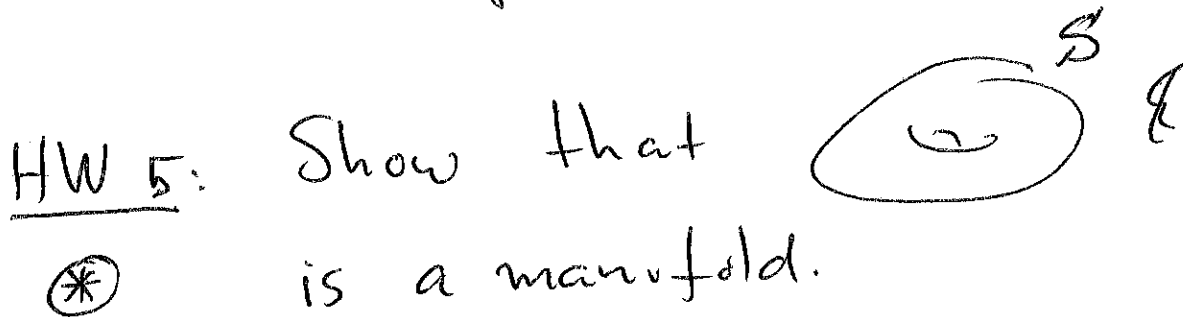 S
HW 5: Show that &
⊛ is a manifold.